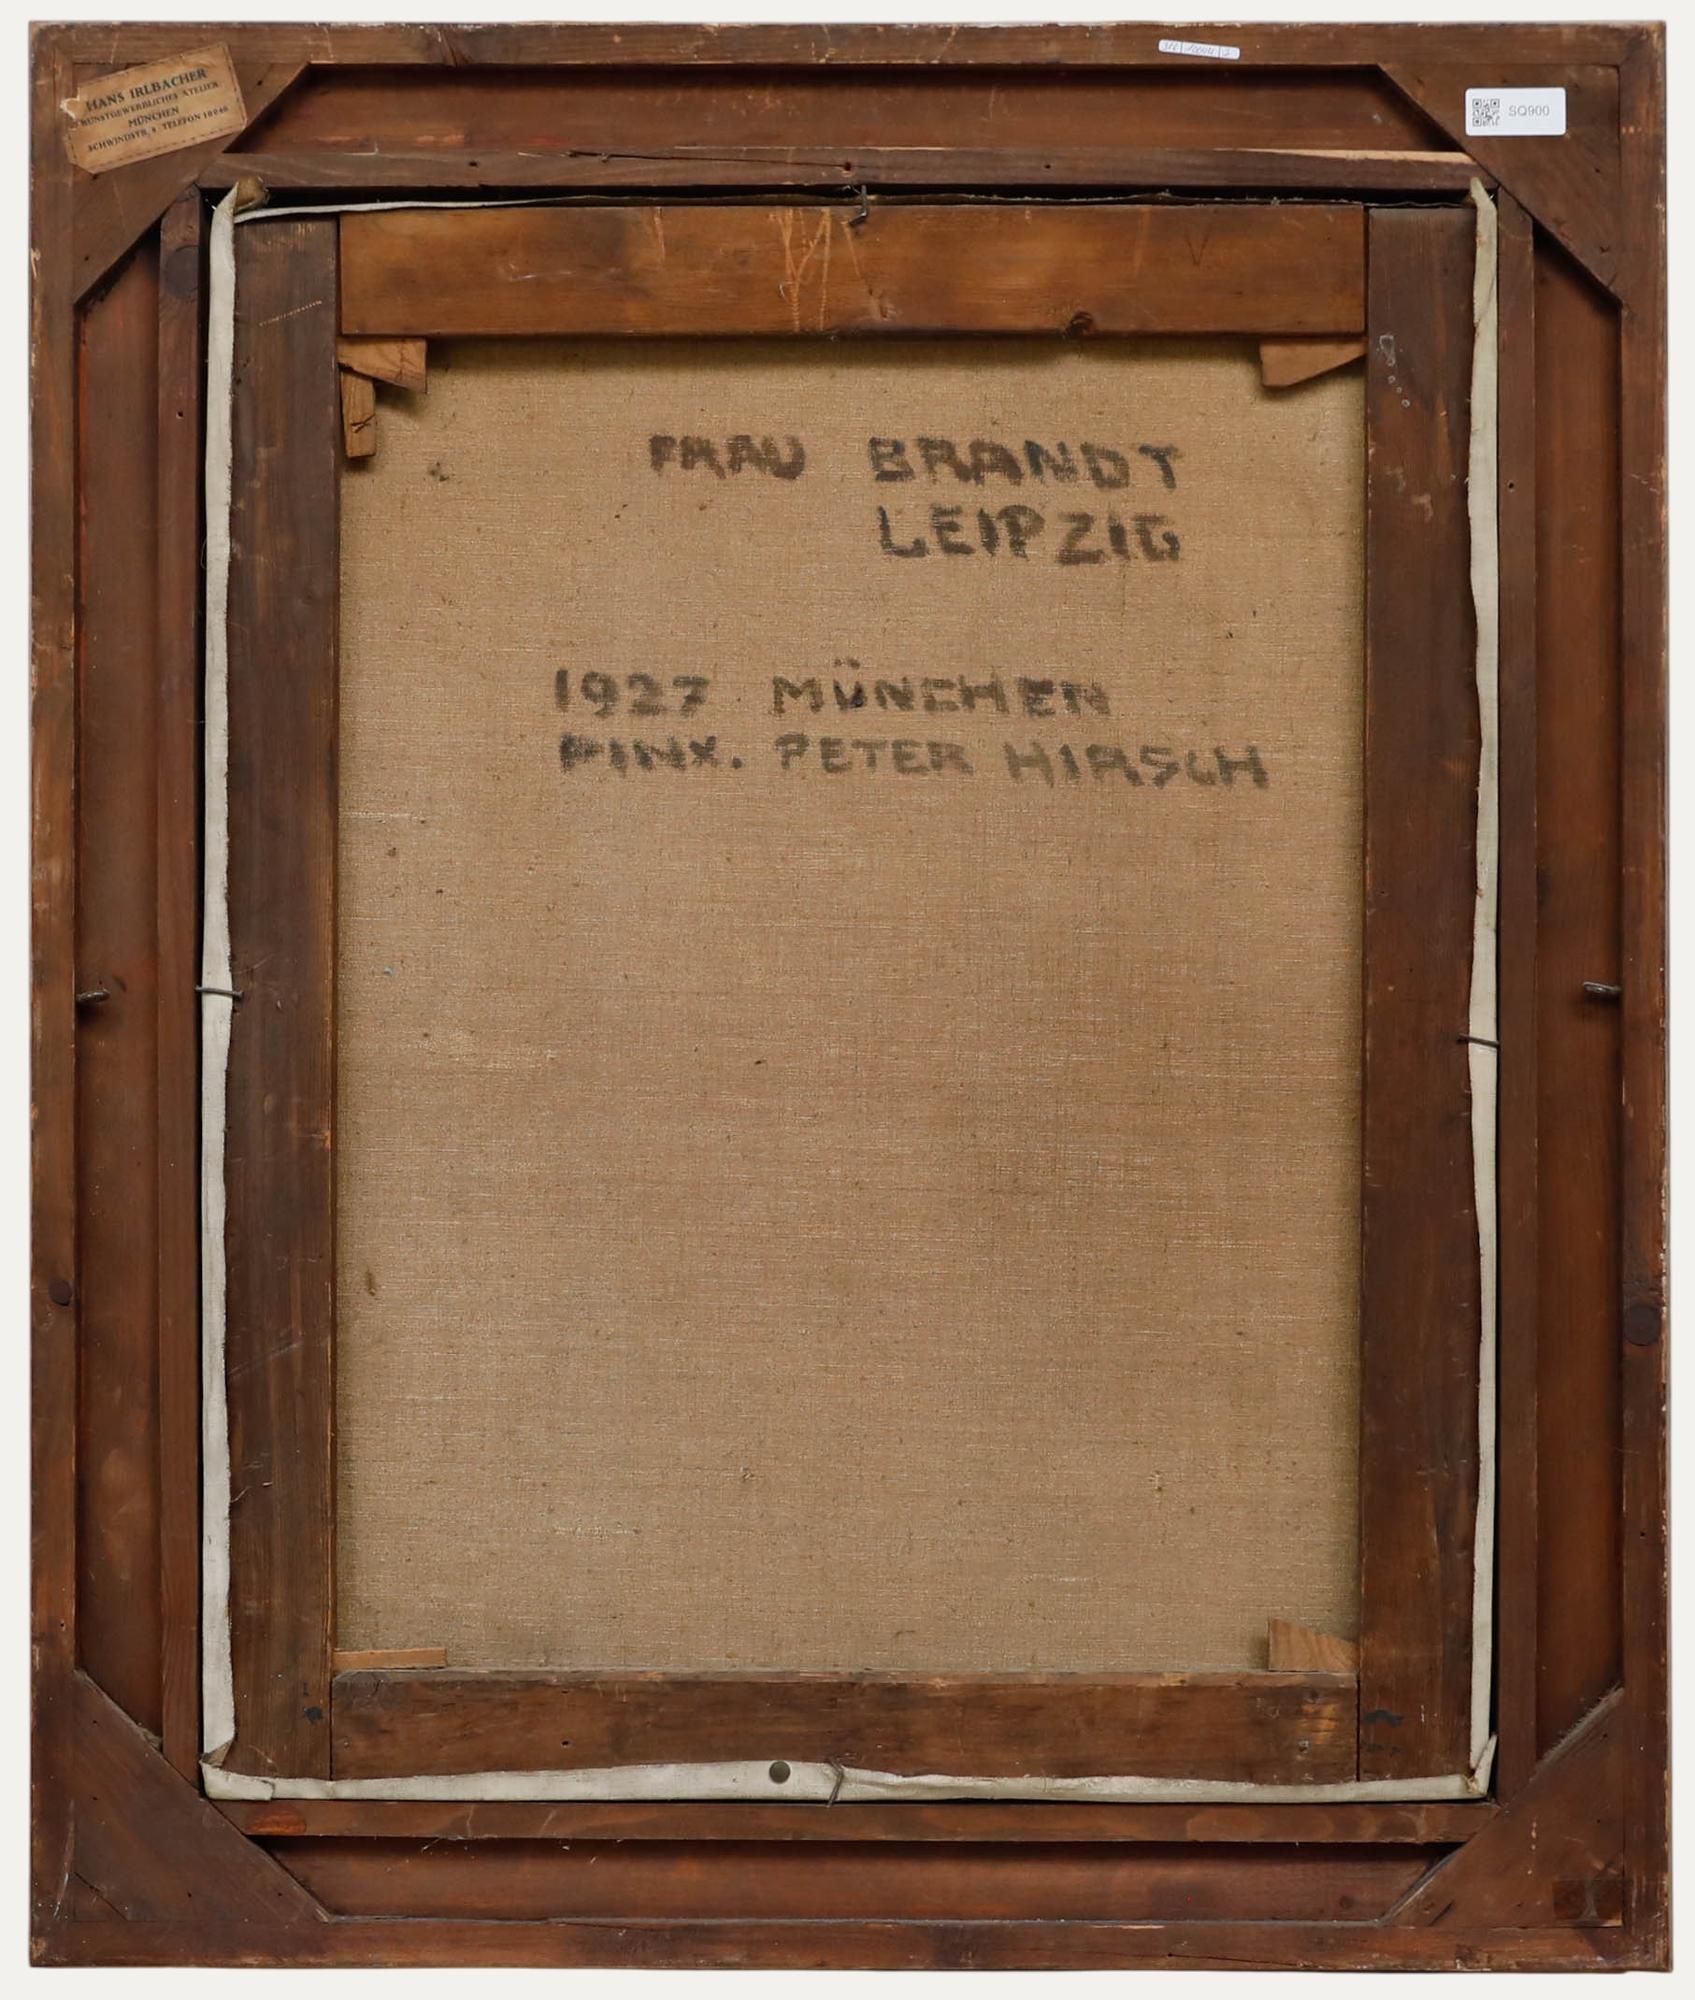 HANS IRLBACHER
KUNSTGEWERBLICHES ATELIER
MÜNCHEN
SCHWINDSTR. TELEFON
SQ900
FRAU BRANDT
LEIPZIG
1927 MÜNCHEN
PINX. PETER HIRSCH